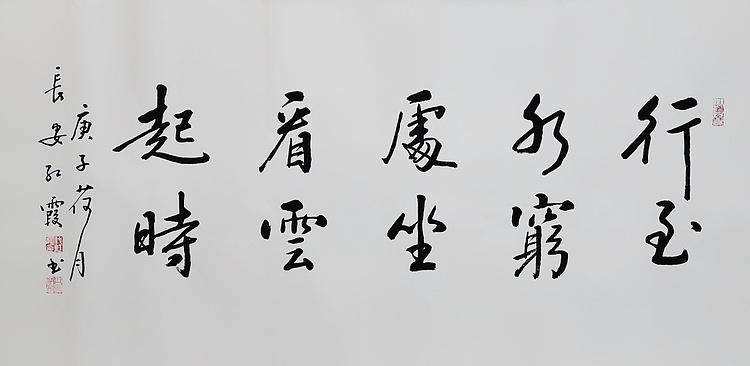 行至
水窮
處坐
看雲
起時
庚子荷月
長安紅霞書